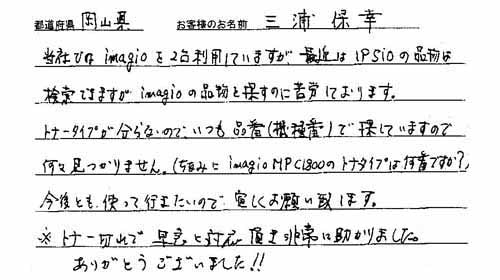 都道府県 岡山県 お客様のお名前 三浦保幸
当社では imagio を2台利用していますが 最近は IPSiO の品物は
検索できますが imagio の品物を探すのに苦労しております。
トナータイプが分らないので、いつも 品番(機種番)で探していますので
何々見つかりません。(ちなみに imagio MPC1800のトナータイプは何番ですか?)
今後とも 使って行きたいので 宜しくお願い致します。
※ トナー切れで 早急に対応 頂き非常に助かりました。
ありがとうございました!!